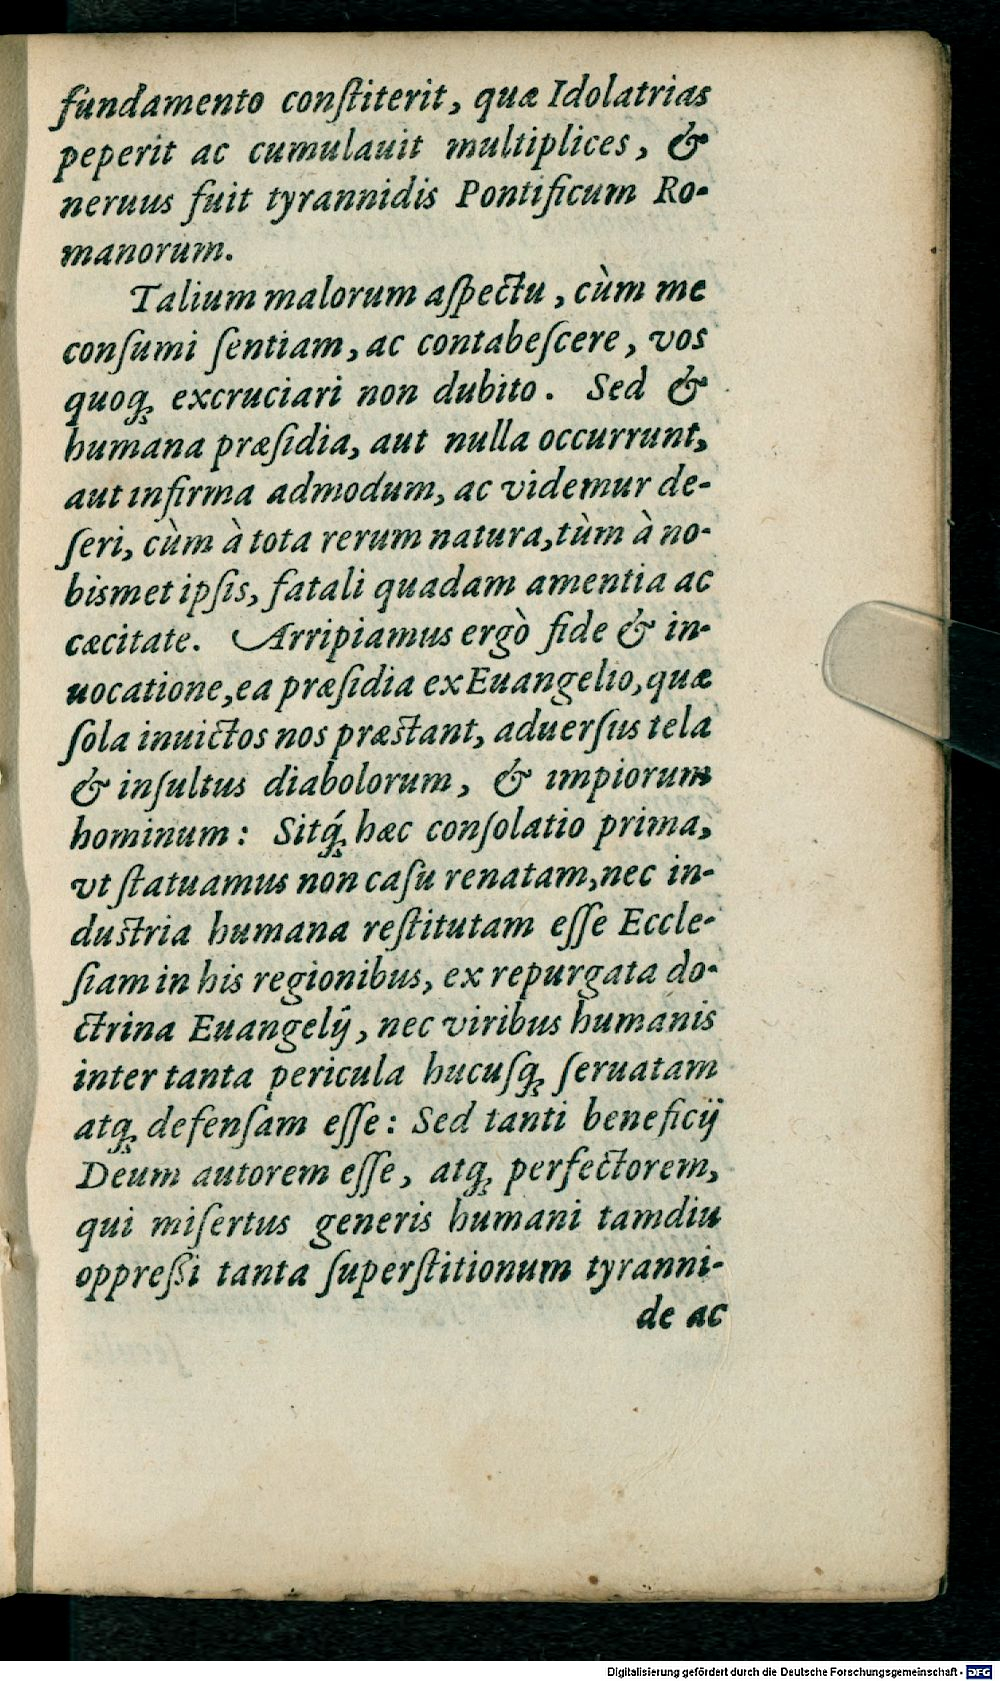 fundamento conſtiterit, quæ Idolatrias
peperit ac cumulauit multiplices, &
neruus fuit tyrannidis Pontificum Ro-
manorum.
Talium malorum aſpectu, cùm me
conſumi ſentiam, ac contabeſcere, vos
quoqꝫ excruciari non dubito. Sed &
humana præſidia, aut nulla occurrunt,
aut infirma admodum, ac videmur de-
ſeri, cùm à tota rerum natura, tùm à no-
bismet ipſis, fatali quadam amentia ac
cæcitate. Arripiamus ergò fide & in-
uocatione, ea præſidia ex Euangelio, quæ
ſola inuictos nos præſtant, aduerſus tela
& inſultus diabolorum, & impiorum
hominum: Sitq́ꝫ hæc conſolatio prima,
vt ſtatuamus non caſu renatam, nec in-
duſtria humana reſtitutam eſſe Eccle-
ſiam in his regionibus, ex repurgata do-
ctrina Euangelij, nec viribus humanis
inter tanta pericula hucuſqꝫ ſeruatam
atqꝫ defenſam eſſe: Sed tanti beneficij
Deum autorem eſſe, atqꝫ perfectorem,
qui miſertus generis humani tamdiu
oppreßi tanta ſuperſtitionum tyranni-
de ac
Digitalisierung gefördert durch die Deutsche Forschungsgemeinschaft - DFG